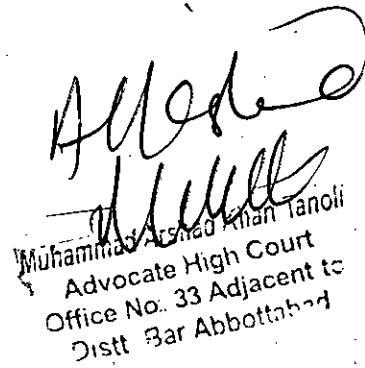 Attested
Muhammad Arshad Khan Tanoli
Advocate High Court
Office No. 33 Adjacent to
Distt Bar Abbottabad